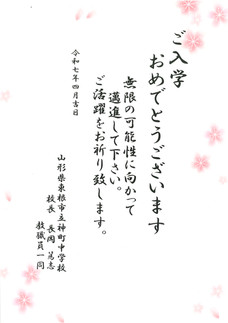 ご入学
おめでとうございます
無限の可能性に向かって
邁進して下さい。
ご活躍をお祈り致します。
令和七年四月吉日
山形県東根市立神町中学校
校長 長岡 篤志
教職員一同